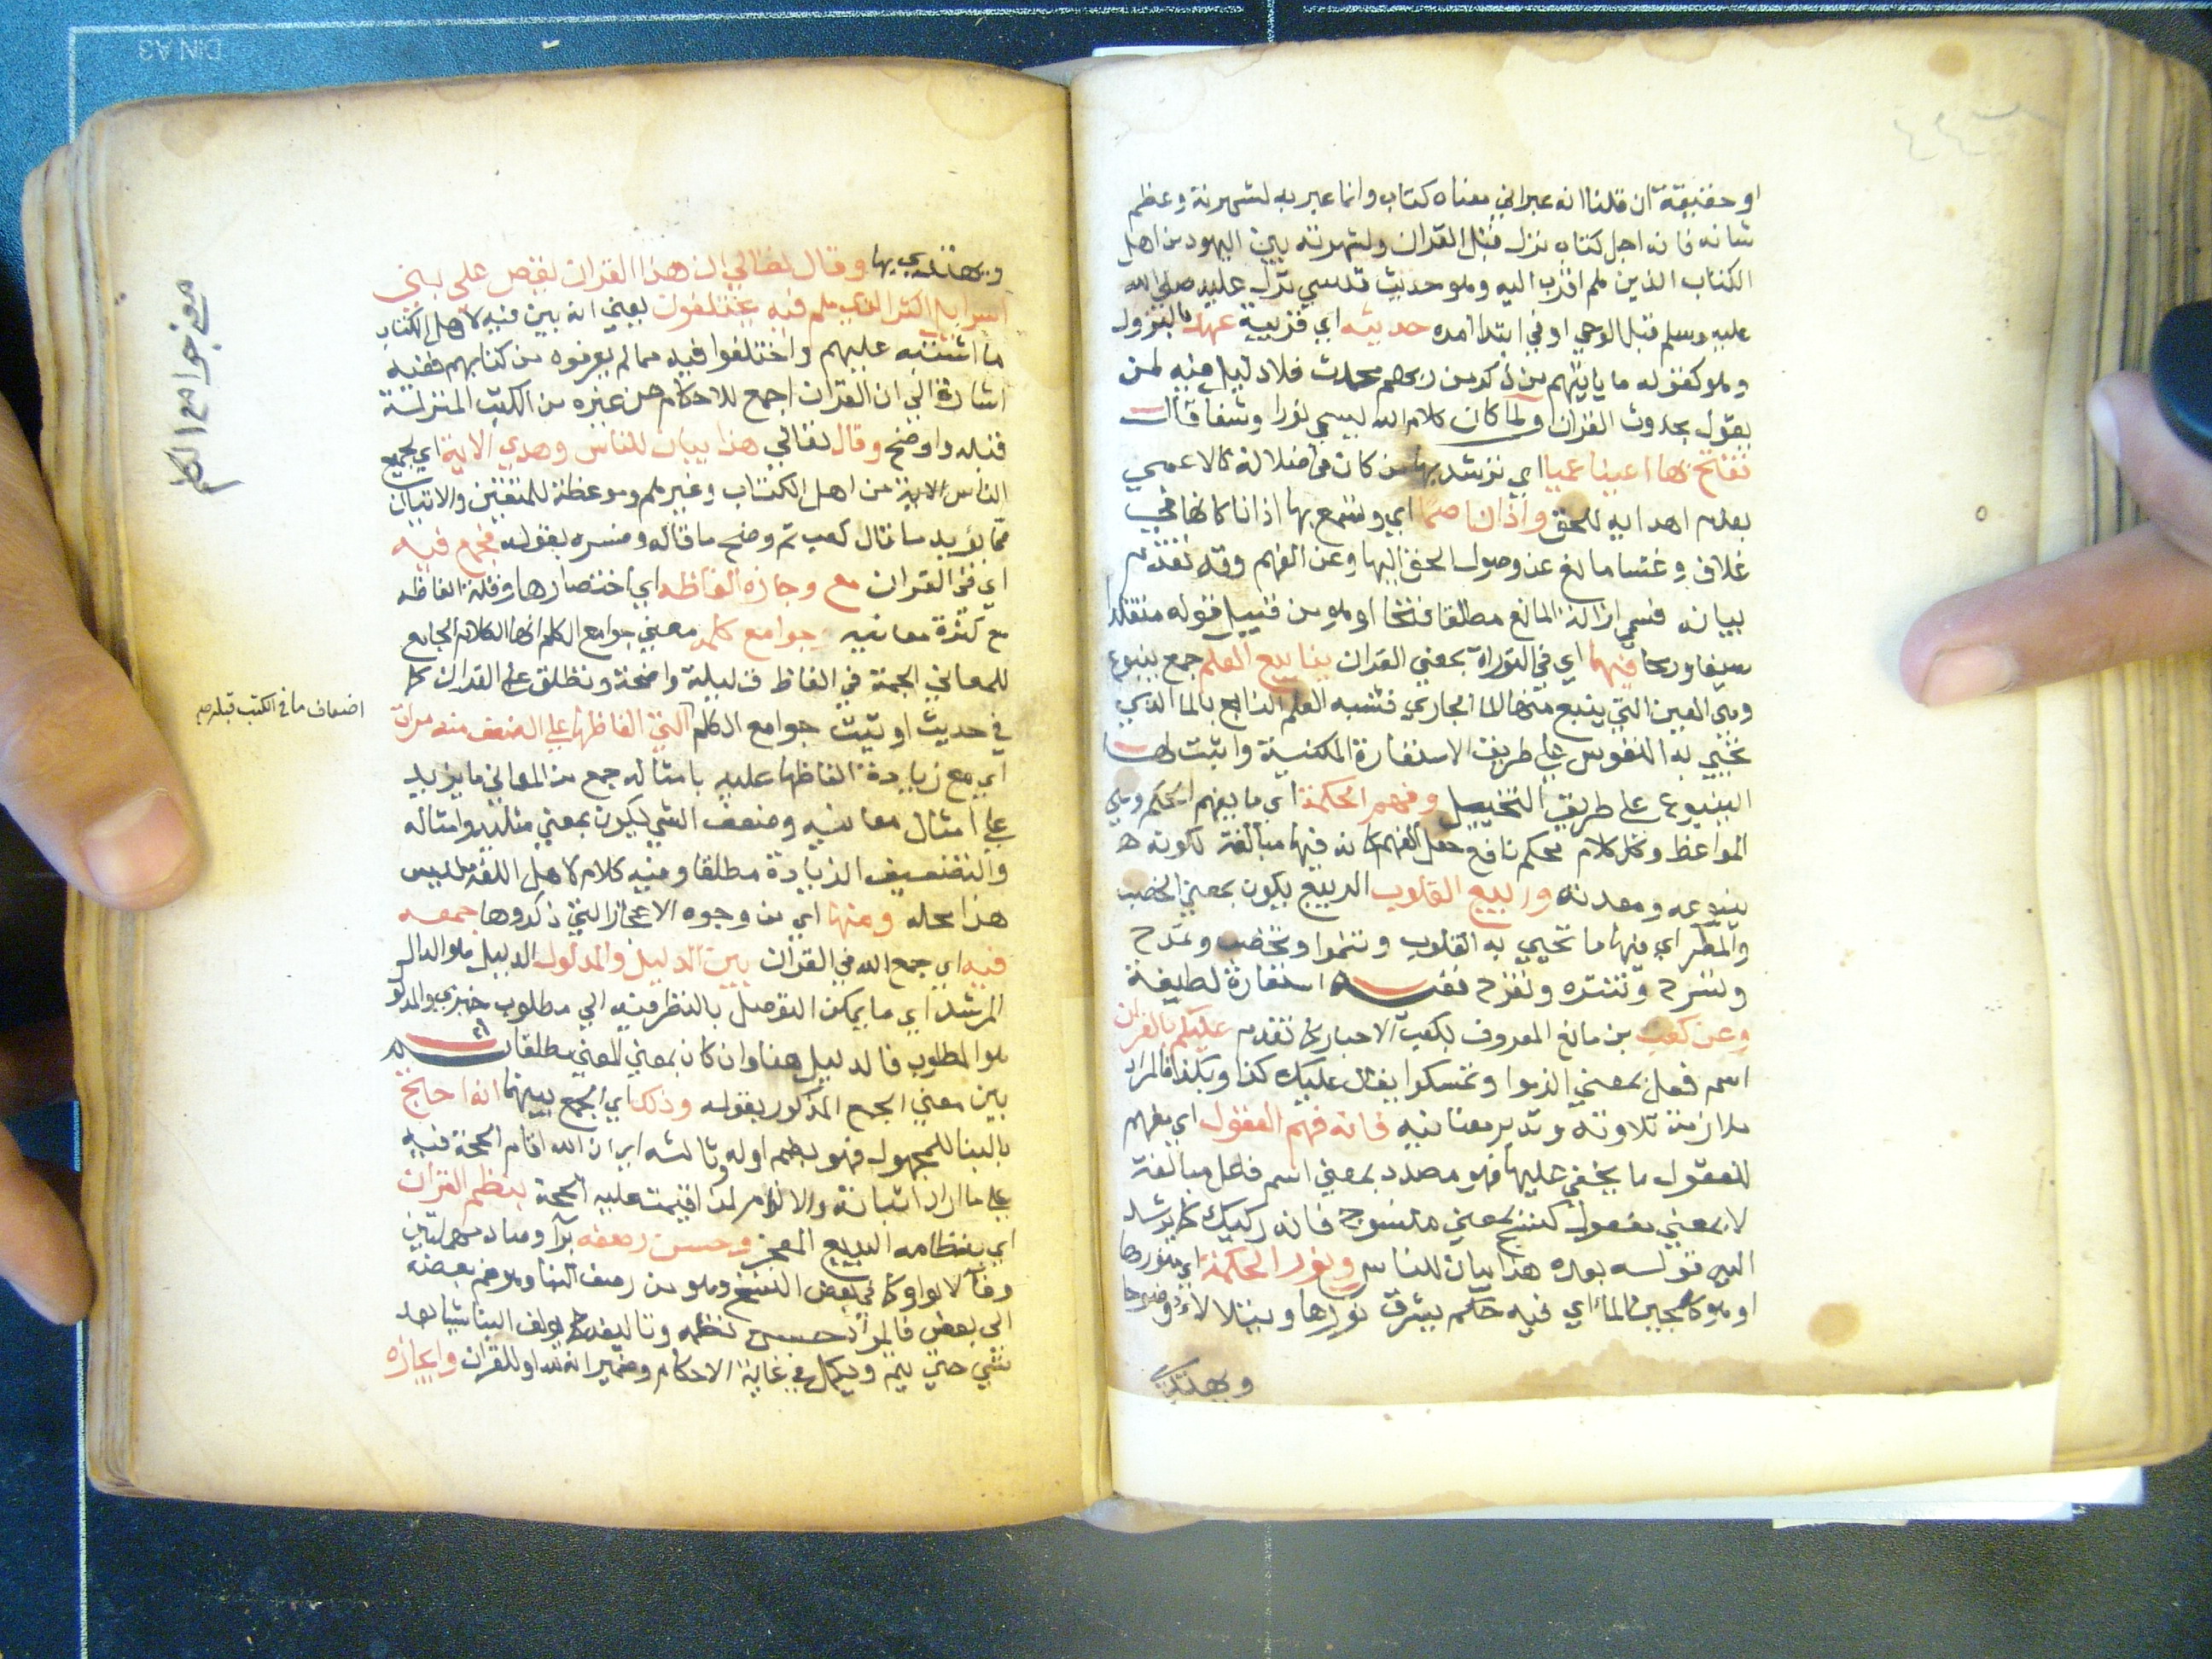 او حقيقة ان قلنا انه عبراني معناه كتاب وانما عبر به لشهرته وعظم
شانه فانه اجل كتاب نزل قبل القران ولشهرته بين اليهود من اهل
الكتاب الذين هم اقرب اليه وهو حديث قدسي نزل عليه صلى الله
عليه وسلم قبل الوحي او في ابتدا امره حديثه اي قريبة عهد بالنزول
وهو كقوله ما ياتيهم من ذكر من ربهم محدث فلا دليل فيه لمن
يقول بحدوث القران ولما كان كلام الله يسمي نورا وشفا قال
تفتح بها اعينا عميا اي ترشد بها من كان في ضلالة كالاعمي
بعدم اهدايه للحق واذانا صما اي وتسمع بها اذانا كانها في
غلاف وغشا مانع عن وصول الحق اليها وعن الفهم وقد تقدم
بيانه فسمي ازالة المانع مطلقا فتحا او هو من قبيل قوله متقلدا
سيفا ورمحا فيها اي في التوراة بمعني القران ينابيع العلم جمع ينبوع
وهي العين التي ينبع منها الما الجاري فشبه العلم النافع بالما الذي
تحيي به النفوس علي طريق الاستعارة المكنية واثبت لها
الينبوع علي طريق التخييل وفهم الحكمة اي ما يفهم الحكم وهي
المواعظ وكل كلام محكم نافع جعل الفهم كانه فيها مبالغة لكونه
ينبوعه ومعدنه وربيع القلوب الربيع يكون بمعني الخصب
والمطر اي فيها ما تحيي به القلوب وتنموا وتخصب وتمرح
وتسرح وتتنزه وتفرح ففيه استعارة لطيفة
وعن كعب بن ماتع المعروف بكعب الاحبار كما تقدم عليكم بالقران
اسم فعل بمعني الزموا وتمسكوا يقال عليك كذا وبكذا فالمراد
ملازمة تلاوته وتدبر معانيه فانه فهم العقول اي مفهم
للعقول ما يخفي عليها فهو مصدر بمعني اسم فاعل مبالغة
لا بمعني مفعول كنسج بمعني منسوج فانه ركيك كما يرشد
اليه قوله بعده هذا بيان للناس ونور الحكمة اي منورها
او هو كلجين الماء اي فيه حكم يشرق نورها ويتلالاء وضوحا
ويهتدي
ويهتدي بها وقال تعالي ان هذا القران يقص علي بني
اسرايل اكثر الذي هم فيه يختلفون يعني انه بين فيه لاهل الكتاب
ما اشتبه عليهم واختلفوا فيه مما لم يعرفوه من كتابهم ففيه
اشارة الي ان القران اجمع للاحكام من غيره من الكتب المنزلة
قبله واوضح وقال تعالي هذا بيان للناس وهدي الاية اي لجميع
الناس الاية من اهل الكتاب وغيرهم وموعظة للمتقين والايتان
مما يؤيد ما قال كعب ثم وضح ما قاله وفسره بقوله فجمع فيه
اي في القران مع وجازة الفاظه اي اختصارها وقلة الفاظه
مع كثرة معانيه وجوامع كلمه معني جوامع الكلم انها الكلام الجامع
للمعاني الجمة في الفاظ قليلة واضحة وتطلق علي القران كما
في حديث اوتيت جوامع الكلم التي الفاظها علي الضعف منه مرات
اي مع زيادة الفاظها عليه بامثاله جمع من المعاني ما يزيد
علي امثال معانيه وضعف الشي يكون بمعني مثليه وامثاله
والتضعيف الزيادة مطلقا وفيه كلام لاهل اللغة ليس
هذا محله ومنها اي من وجوه الاعجاز التي ذكروها جمعه
فيه اي جمع الله في القران بين الدليل والمدلول الدليل هو الدال
المرشد اي ما يمكن التوصل بالنظر فيه الي مطلوب خبري والمدلو
هو المطلوب فالدليل هنا وان كان بمعني المعني مطلقا
بين معني الجمع المذكور بقوله وذلك اي الجمع بينهما انه احتج
بالبنا للمجهول فهو بضم اوله وثالثه اي ان الله اقام الحجة فيه
علي ما اراد اثباته والالزام لمن اقيمت عليه الحجة بنظم القران
اي بنظامه البديع المعجز وحسن رصفه برا وصاد مهملتين
وفا لا بواو كما في بعض النسخ وهو من رصف البنا وهو ضم بعضه
الي بعض فالمراد حسن نظمه وتاليفه كما يولف البنا شيا بعد
شي حتي يتم ويكمل في غاية الاحكام وضمير انه لله او للقران وايجازه
معني جوامع الكلم
اضعاف ما في الكتب قبله صح